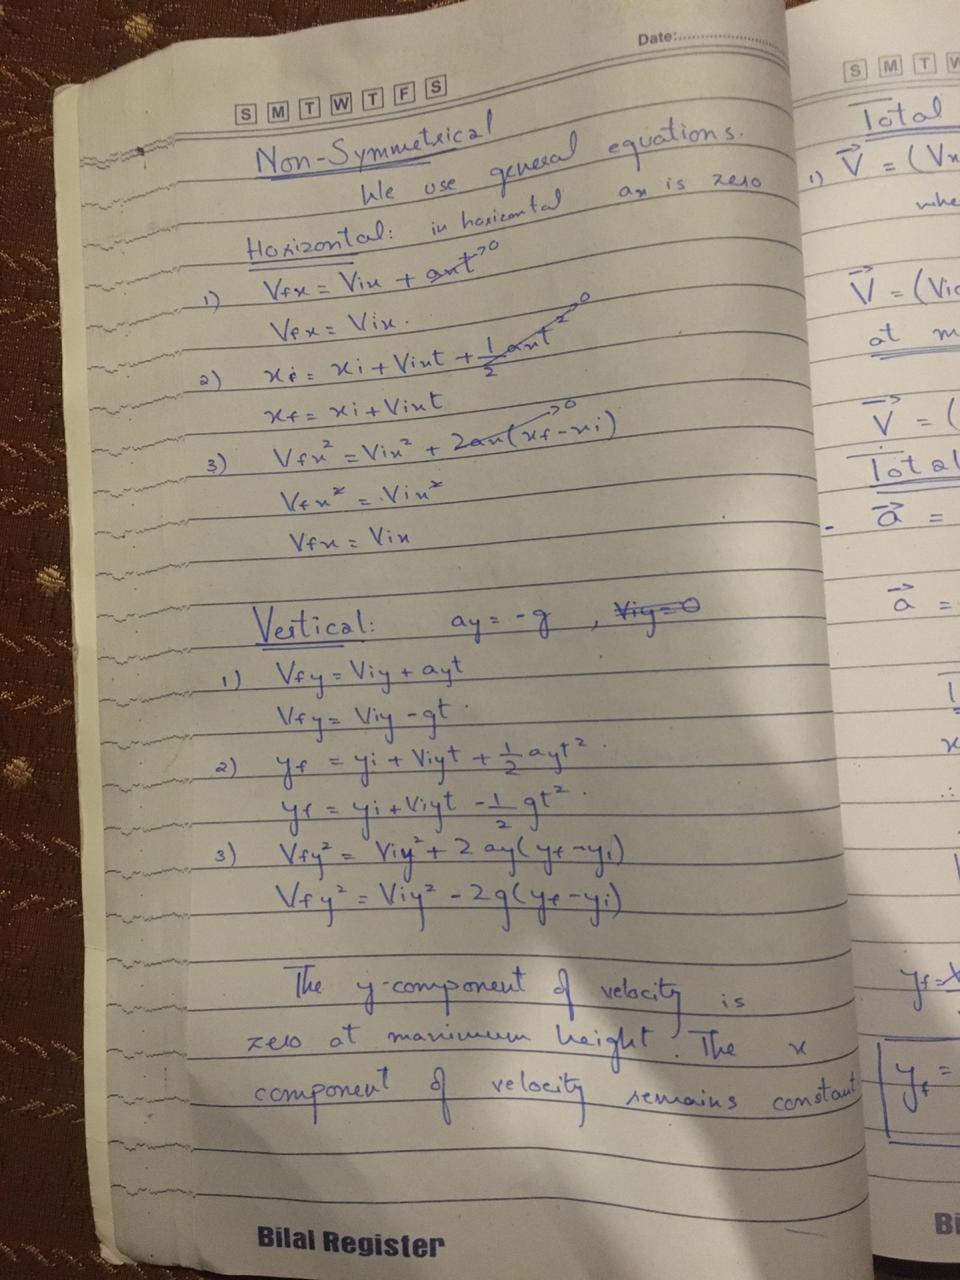 Date:
S M T W T F S
Non-Symmetrical
We use general equations.
Horizontal: in horizontal ax is zero
1) Vfx = Vix + axt →0
Vfx = Vix.
2) xf = xi + Vixt + 1/2 axt² →0
xf = xi + Vixt
3) Vfx² = Vix² + 2ax(xf-xi) →0
Vfx² = Vix²
Vfx = Vix
Vertical: ay = -g , Viy=0
1) Vfy = Viy + ayt
Vfy = Viy - gt.
2) yf = yi + Viyt + 1/2 ayt².
yf = yi + Viyt - 1/2 gt².
3) Vfy² = Viy² + 2 ay(yf-yi)
Vfy² = Viy² - 2g(yf-yi)
The y-component of velocity is
zero at maximum height. The x
component of velocity remains constant
Bilal Register
S M T W
Total
1) V⃗ = (Vx
whe
V⃗ = (Vio
at m
V⃗ = (
Total
a⃗ =
a⃗ =
x
∴
yf = x
yf =
Bi